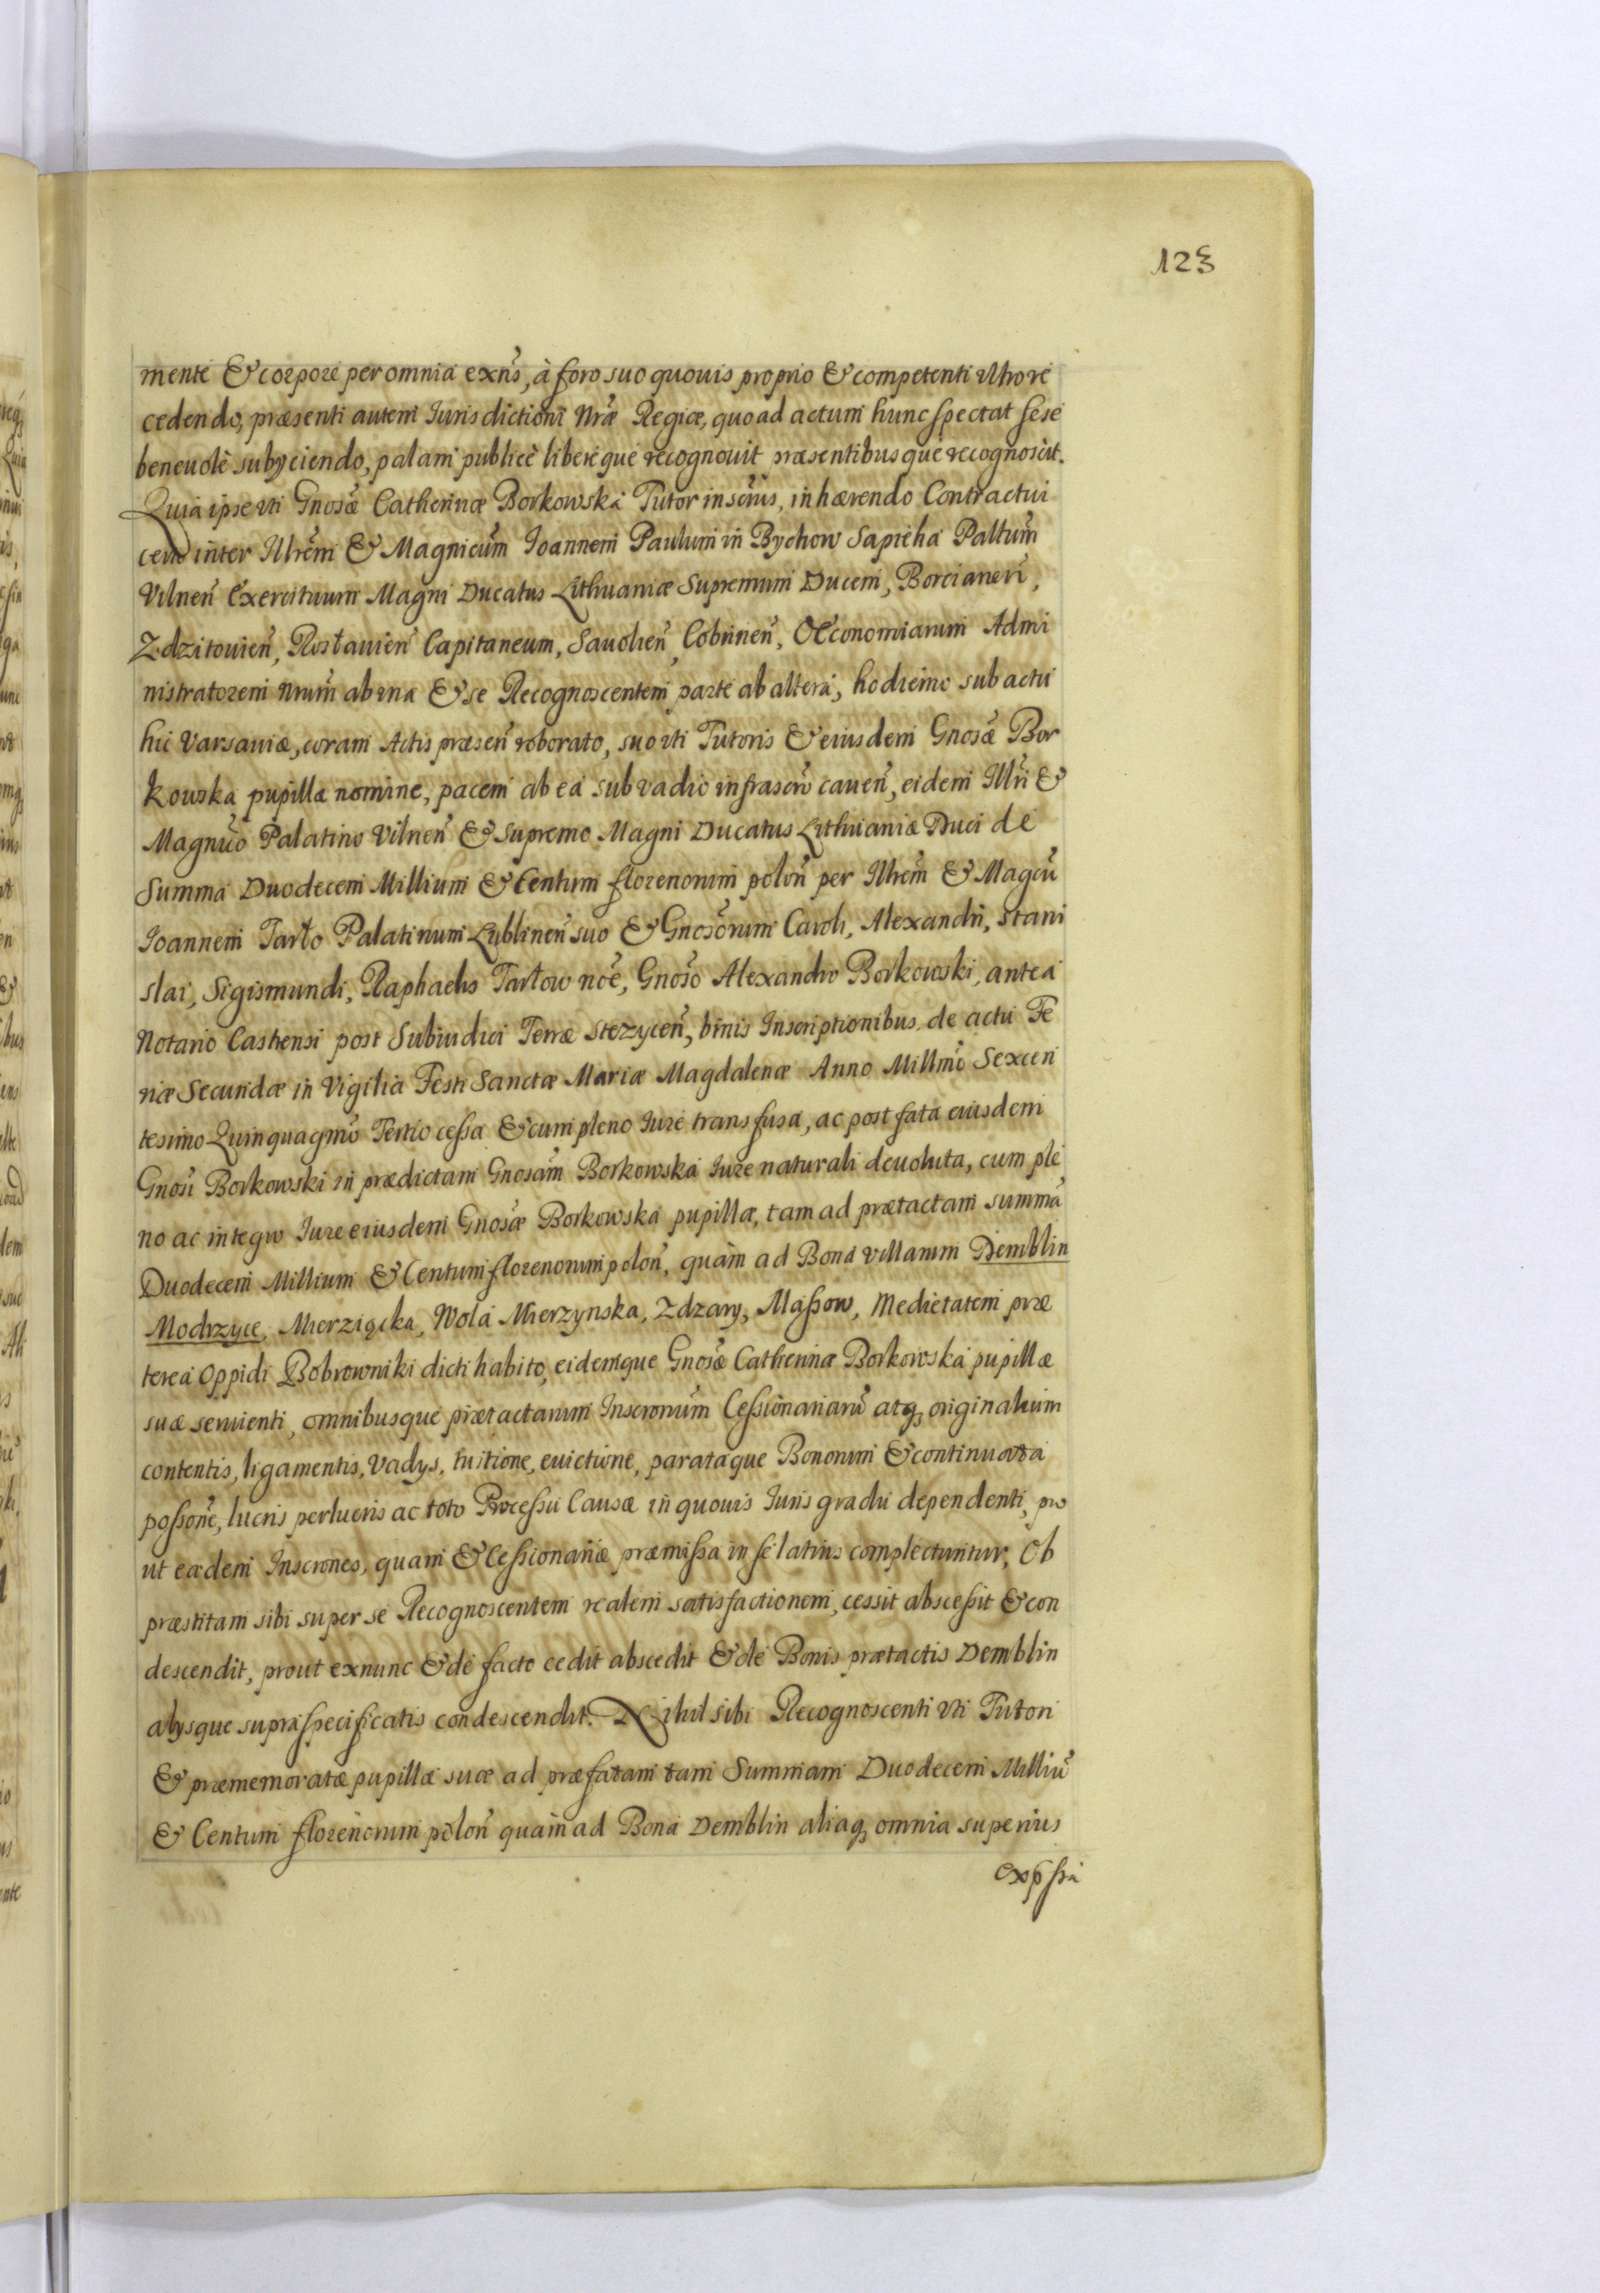 123
mente & corpore per omnia exñs, à foro suo quovis proprio & competenti ultro re
cedendo, præsenti autem Iurisdictioni Nræ Regiæ, quo ad actum hunc spectat sese
benevolè subyciendo, palam publicè liberè que recognovit præsentibus que recognoscit.
Quia ipse uti Gnosæ Catherinæ Borkowska Tutor inscrius, inhærendo Contractui
certo inter Illrem & Magnicum Ioannem Paulum in Bychow Sapieha Paltum
Vilneñ Exercituum Magni Ducatus Lithuaniæ Supremum Ducem, Borcianeñ,
Zdzitovieñ, Rosławieñ Capitaneum, Savolieñ, Cobrineñ, OEconomiarum Admi
nistratorem Nrum ab una & se Recognoscentem parte ab altera, hodierno sub actu
hic Varsaviæ, coram Actis præseñ roborato, suo uti Tutoris & eiusdem Gnosæ Bor
kowska pupilla nomine, pacem ab ea sub vadio infrascro caveñ, eidem Illri &
Magnico Palatino Vilneñ & Supremo Magni Ducatus Lithuaniæ Duci de
Summa Duodecem Millium & Centum florenorum poloñ per Illrem & Magcu
Ioannem Tarło Palatinum Lublineñ suo & Gnosorum Caroli, Alexandri, Stani
slai, Sigismundi, Raphaelis Tarłow noe, Gnoso Alexandro Borkowski, antea
Notario Castrensi post Subiudici Terræ Stezyceñ, binis Inscriptionibus de actu Fe
riæ Secundæ in Vigilia Festi Sanctæ Mariæ Magdalenæ Anno Millmo Sexcen
tesimo Quinquagmo Tertio cessa & cum pleno Iure transfusa, ac post fata eiusdem
Gnosi Borkowski in prædictam Gnosam Borkowska Iure naturali devoluta, cum ple
no ac integro Iure eiusdem Gnosæ Borkowska pupillæ, tam ad prætactam summa
Duodecem Millium & Centum florenorum poloñ, quàm ad Bona Villarum Demblin
Modrzyce, Mierziącka, Wola Mierzynska, Zdzary, Massow, Medietatem præ
terea Oppidi Bobrowniki dicti habito, eidemque Gnosæ Catherinæ Borkowska pupillæ
suæ servienti, omnibusque prætactarum Inscronum Cessionariaru atq, originalium
contentis, ligamentis, Vadys, tuitione, evictione, parataque Bonorum & continuata
possone, lucris perlucris ac toto Processu Causæ in quovis Iuris gradu dependenti, pro
ut eædem Inscrones, quam & Cessionariæ præmissa in se latius complectuntur, Ob
præstitam sibi super se Recognoscentem realem satisfactionem, cessit abscessit & con
descendit, prout exnunc & de facto cedit abscedit & de Bonis prætactis Demblin
alysque supra specificatis condescendit. Nihil sibi Recognoscenti Uti Tutori
& præmemoratæ pupillæ suæ ad præfatam tam Summam Duodecem Milliu
& Centum florenorum poloñ quàm ad Bona Demblin aliaq, omnia superius
expssa